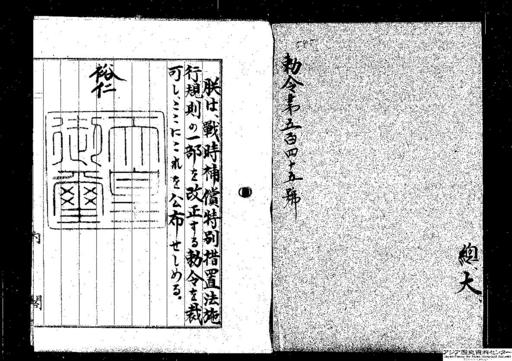 勅令第五百四十五號
總、大
朕は、戰時補償特別措置法施
行規則の一部を改正する勅令を裁
可し、ここにこれを公布せしめる。
裕仁
天皇
御璽
内閣
アジア歴史資料センター